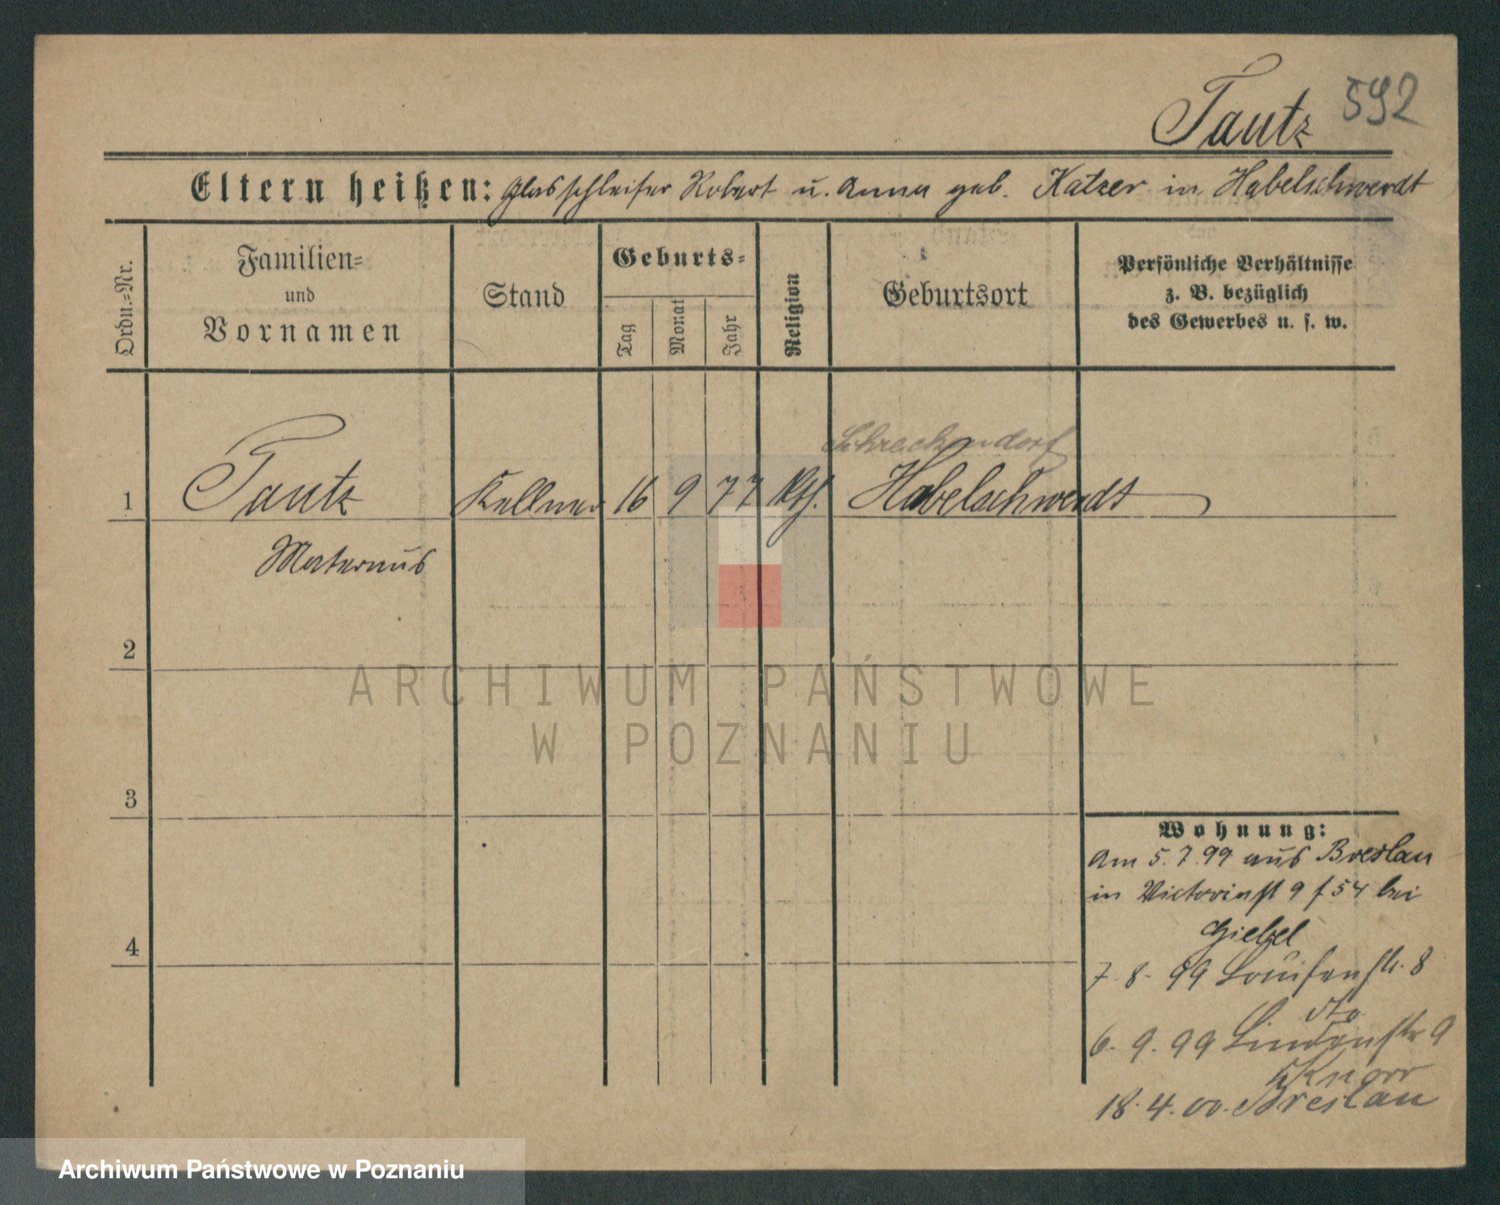 Tautz 592
Eltern heißen: Glasschleifer Robert u. Anna geb. Katzer in Habelschwerdt
Ordn.=Nr.
Familien=
und
Vornamen
Stand
Geburts=
Tag
Monat
Jahr
Religion
Geburtsort
Persönliche Verhältnisse
z. B. bezüglich
des Gewerbes u. s. w.
Schreckendorf
1 Tautz Kellner 16 9 77 Kth. Habelschwerdt
Maternus
2
ARCHIWUM PAŃSTWOWE
W POZNANIU
3
4
Wohnung:
Am 5.7.99 aus Breslau
in Victoriast 9 f 54 bei
Giebel
7.8.99 Louisenstr. 8
dto
6.9.99 Lindenstr 9
b Knorr
18.4.00. Breslau
Archiwum Państwowe w Poznaniu